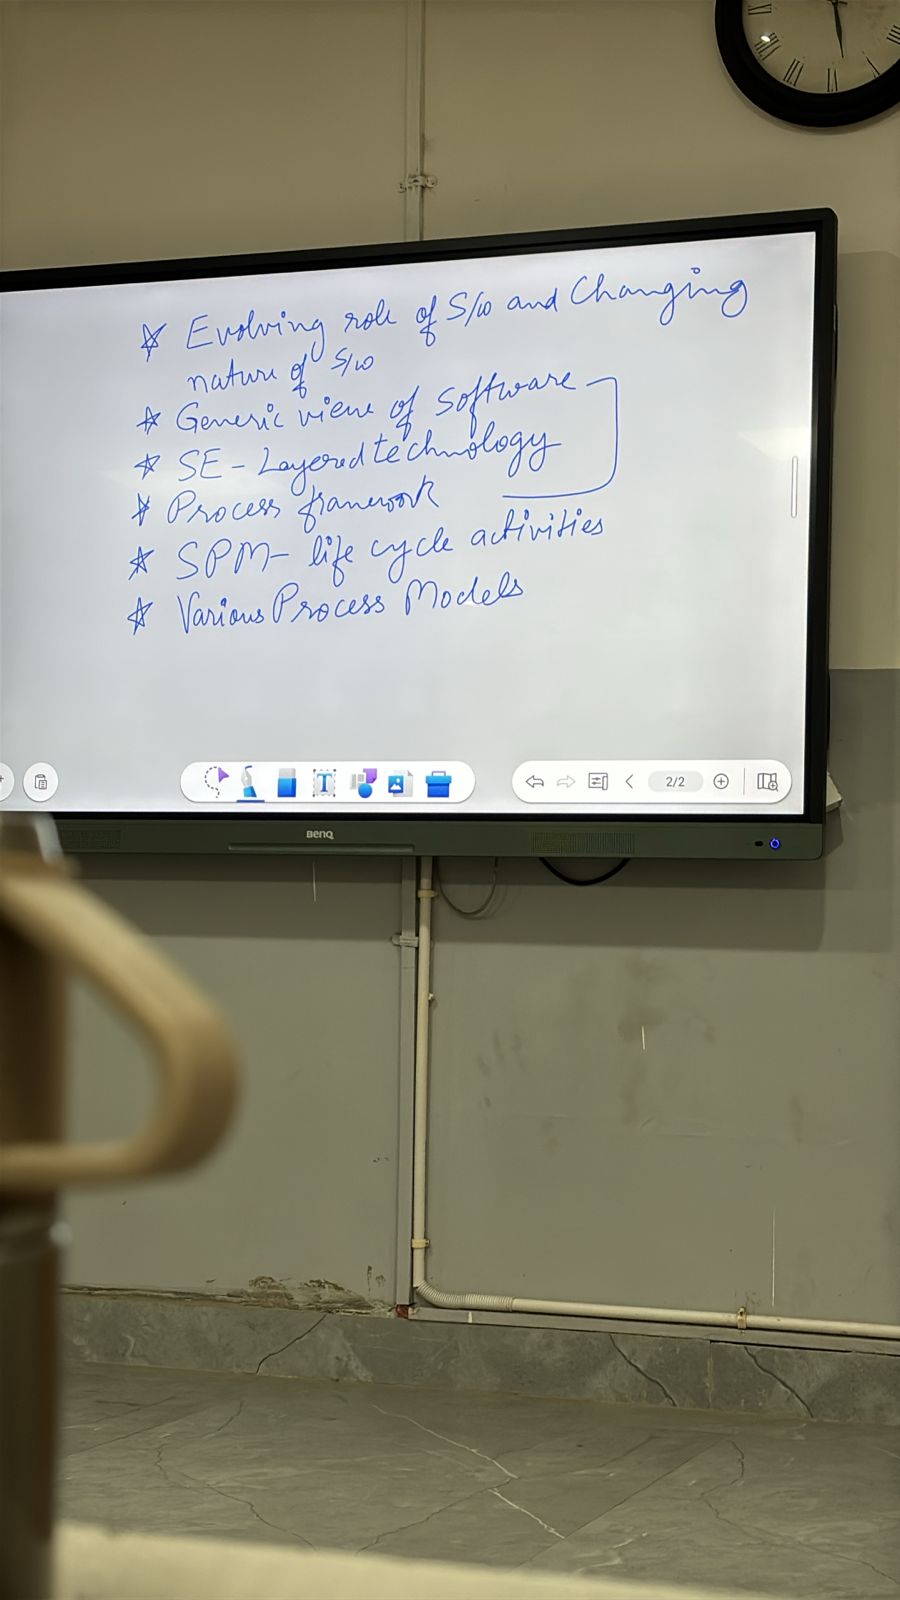 * Evolving role of S/w and Changing
nature of S/w
* Generic view of software
* SE - Layered technology
* Process framework
* SPM - life cycle activities
* Various Process Models
T
2/2
BenQ